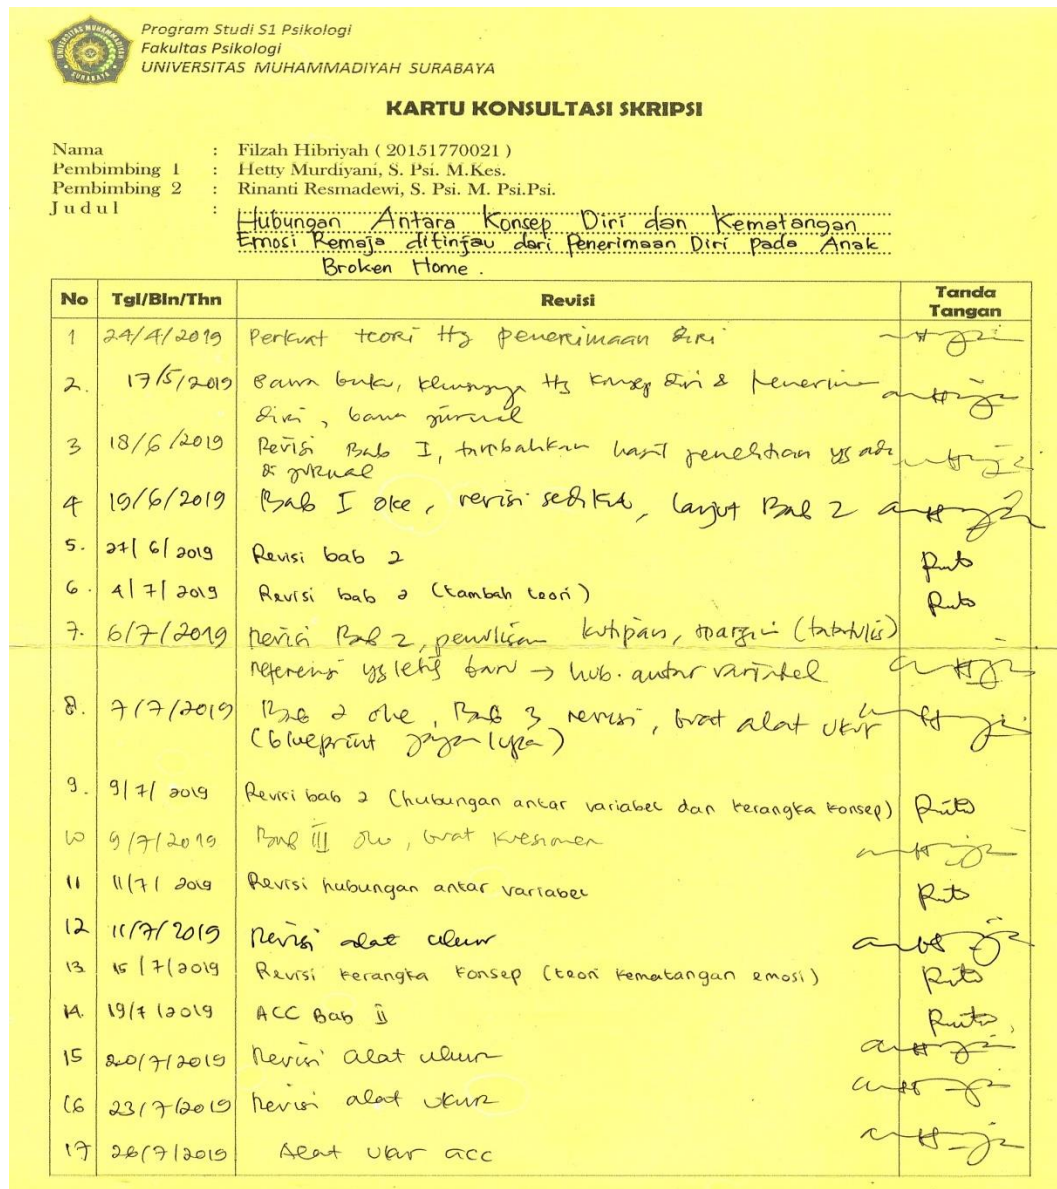 UNIVERSITAS MUHAMMADIYAH SURABAYA
Program Studi S1 Psikologi
Fakultas Psikologi
UNIVERSITAS MUHAMMADIYAH SURABAYA
KARTU KONSULTASI SKRIPSI
Nama : Filzah Hibriyah ( 20151770021 )
Pembimbing 1 : Hetty Murdiyani, S. Psi. M.Kes.
Pembimbing 2 : Rinanti Resmadewi, S. Psi. M. Psi.Psi.
J u d u l : Hubungan Antara Konsep Diri dan Kematangan
Emosi Remaja ditinjau dari Penerimaan Diri pada Anak
Broken Home.
No Tgl/Bln/Thn Revisi Tanda Tangan
1 24/4/2019 Perkuat teori ttg penerimaan diri
2. 17/5/2019 Bawa buku, khususnya ttg konsep diri & penerima
diri, bawa jurnal
3 18/6/2019 Revisi Bab I, tambahkan hasil penelitian yg ada
di jurnal
4 19/6/2019 Bab I oke, revisi sedikit, lanjut Bab 2
5. 27/6/2019 Revisi bab 2
6. 4/7/2019 Revisi bab 2 (tambah teori)
7. 6/7/2019 Revisi Bab 2, penulisan kutipan, margin
referensi yg lebih baru → hub. antar variabel
8. 7/7/2019 Bab 2 oke, Bab 3 revisi, buat alat ukur
(blueprint jangan lupa)
9. 9/7/2019 Revisi bab 2 (hubungan antar variabel dan kerangka konsep)
10 9/7/2019 Bab III oke, buat kuesioner
11 11/7/2019 Revisi hubungan antar variabel
12 11/7/2019 Revisi alat ukur
13. 15/7/2019 Revisi kerangka konsep (teori kematangan emosi)
14. 19/7/2019 ACC Bab II
15 20/7/2019 Revisi alat ukur
16 23/7/2019 Revisi alat ukur
17 26/7/2019 Alat ukur acc